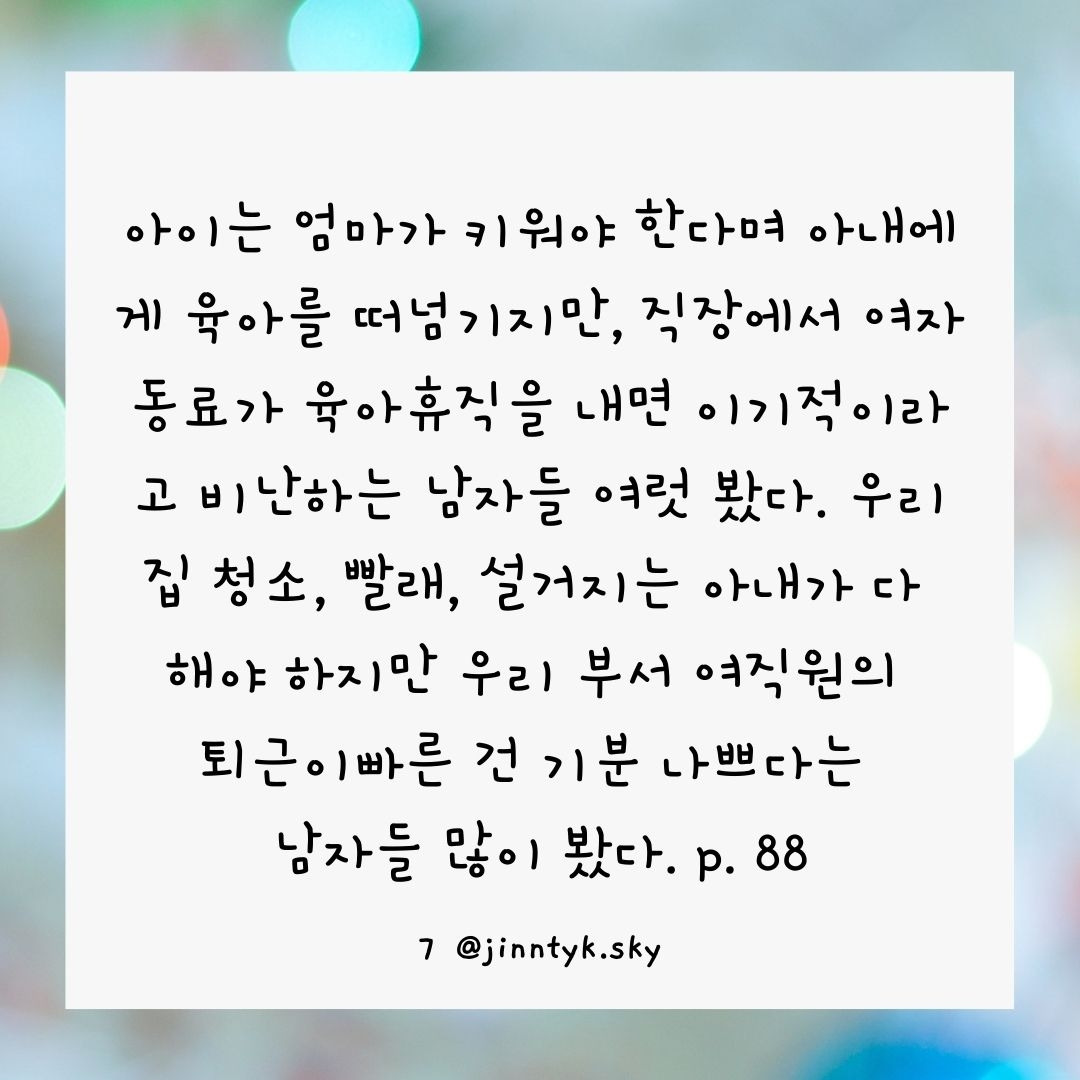 아이는 엄마가 키워야 한다며 아내에
게 육아를 떠넘기지만, 직장에서 여자
동료가 육아휴직을 내면 이기적이라
고 비난하는 남자들 여럿 봤다. 우리
집 청소, 빨래, 설거지는 아내가 다
해야 하지만 우리 부서 여직원의
퇴근이빠른 건 기분 나쁘다는
남자들 많이 봤다. p. 88
7 @jinntyk.sky